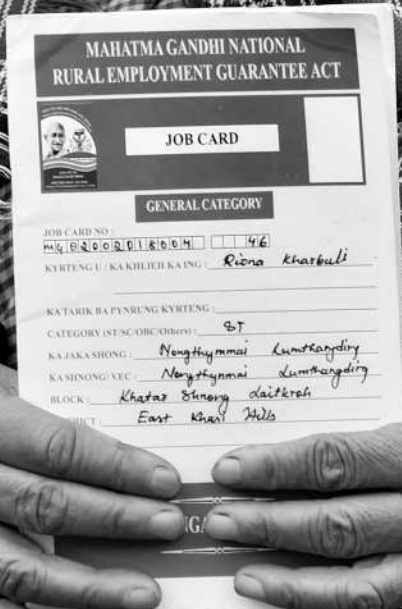 MAHATMA GANDHI NATIONAL
RURAL EMPLOYMENT GUARANTEE ACT
JOB CARD
GENERAL CATEGORY
JOB CARD NO :
46
KYRTENG U / KA KHLIEH KA ING : Riona Kharbuli
KA TARIK BA PYNRUNG KYRTENG :
CATEGORY (ST/SC/OBC/Others) : ST
KA JAKA SHONG : Nongthymmai Lumthangding
KA SHNONG/ VEC : Nongthymmai Lumthangding
BLOCK : Khatar Shnong Laitkroh
East Khasi Hills